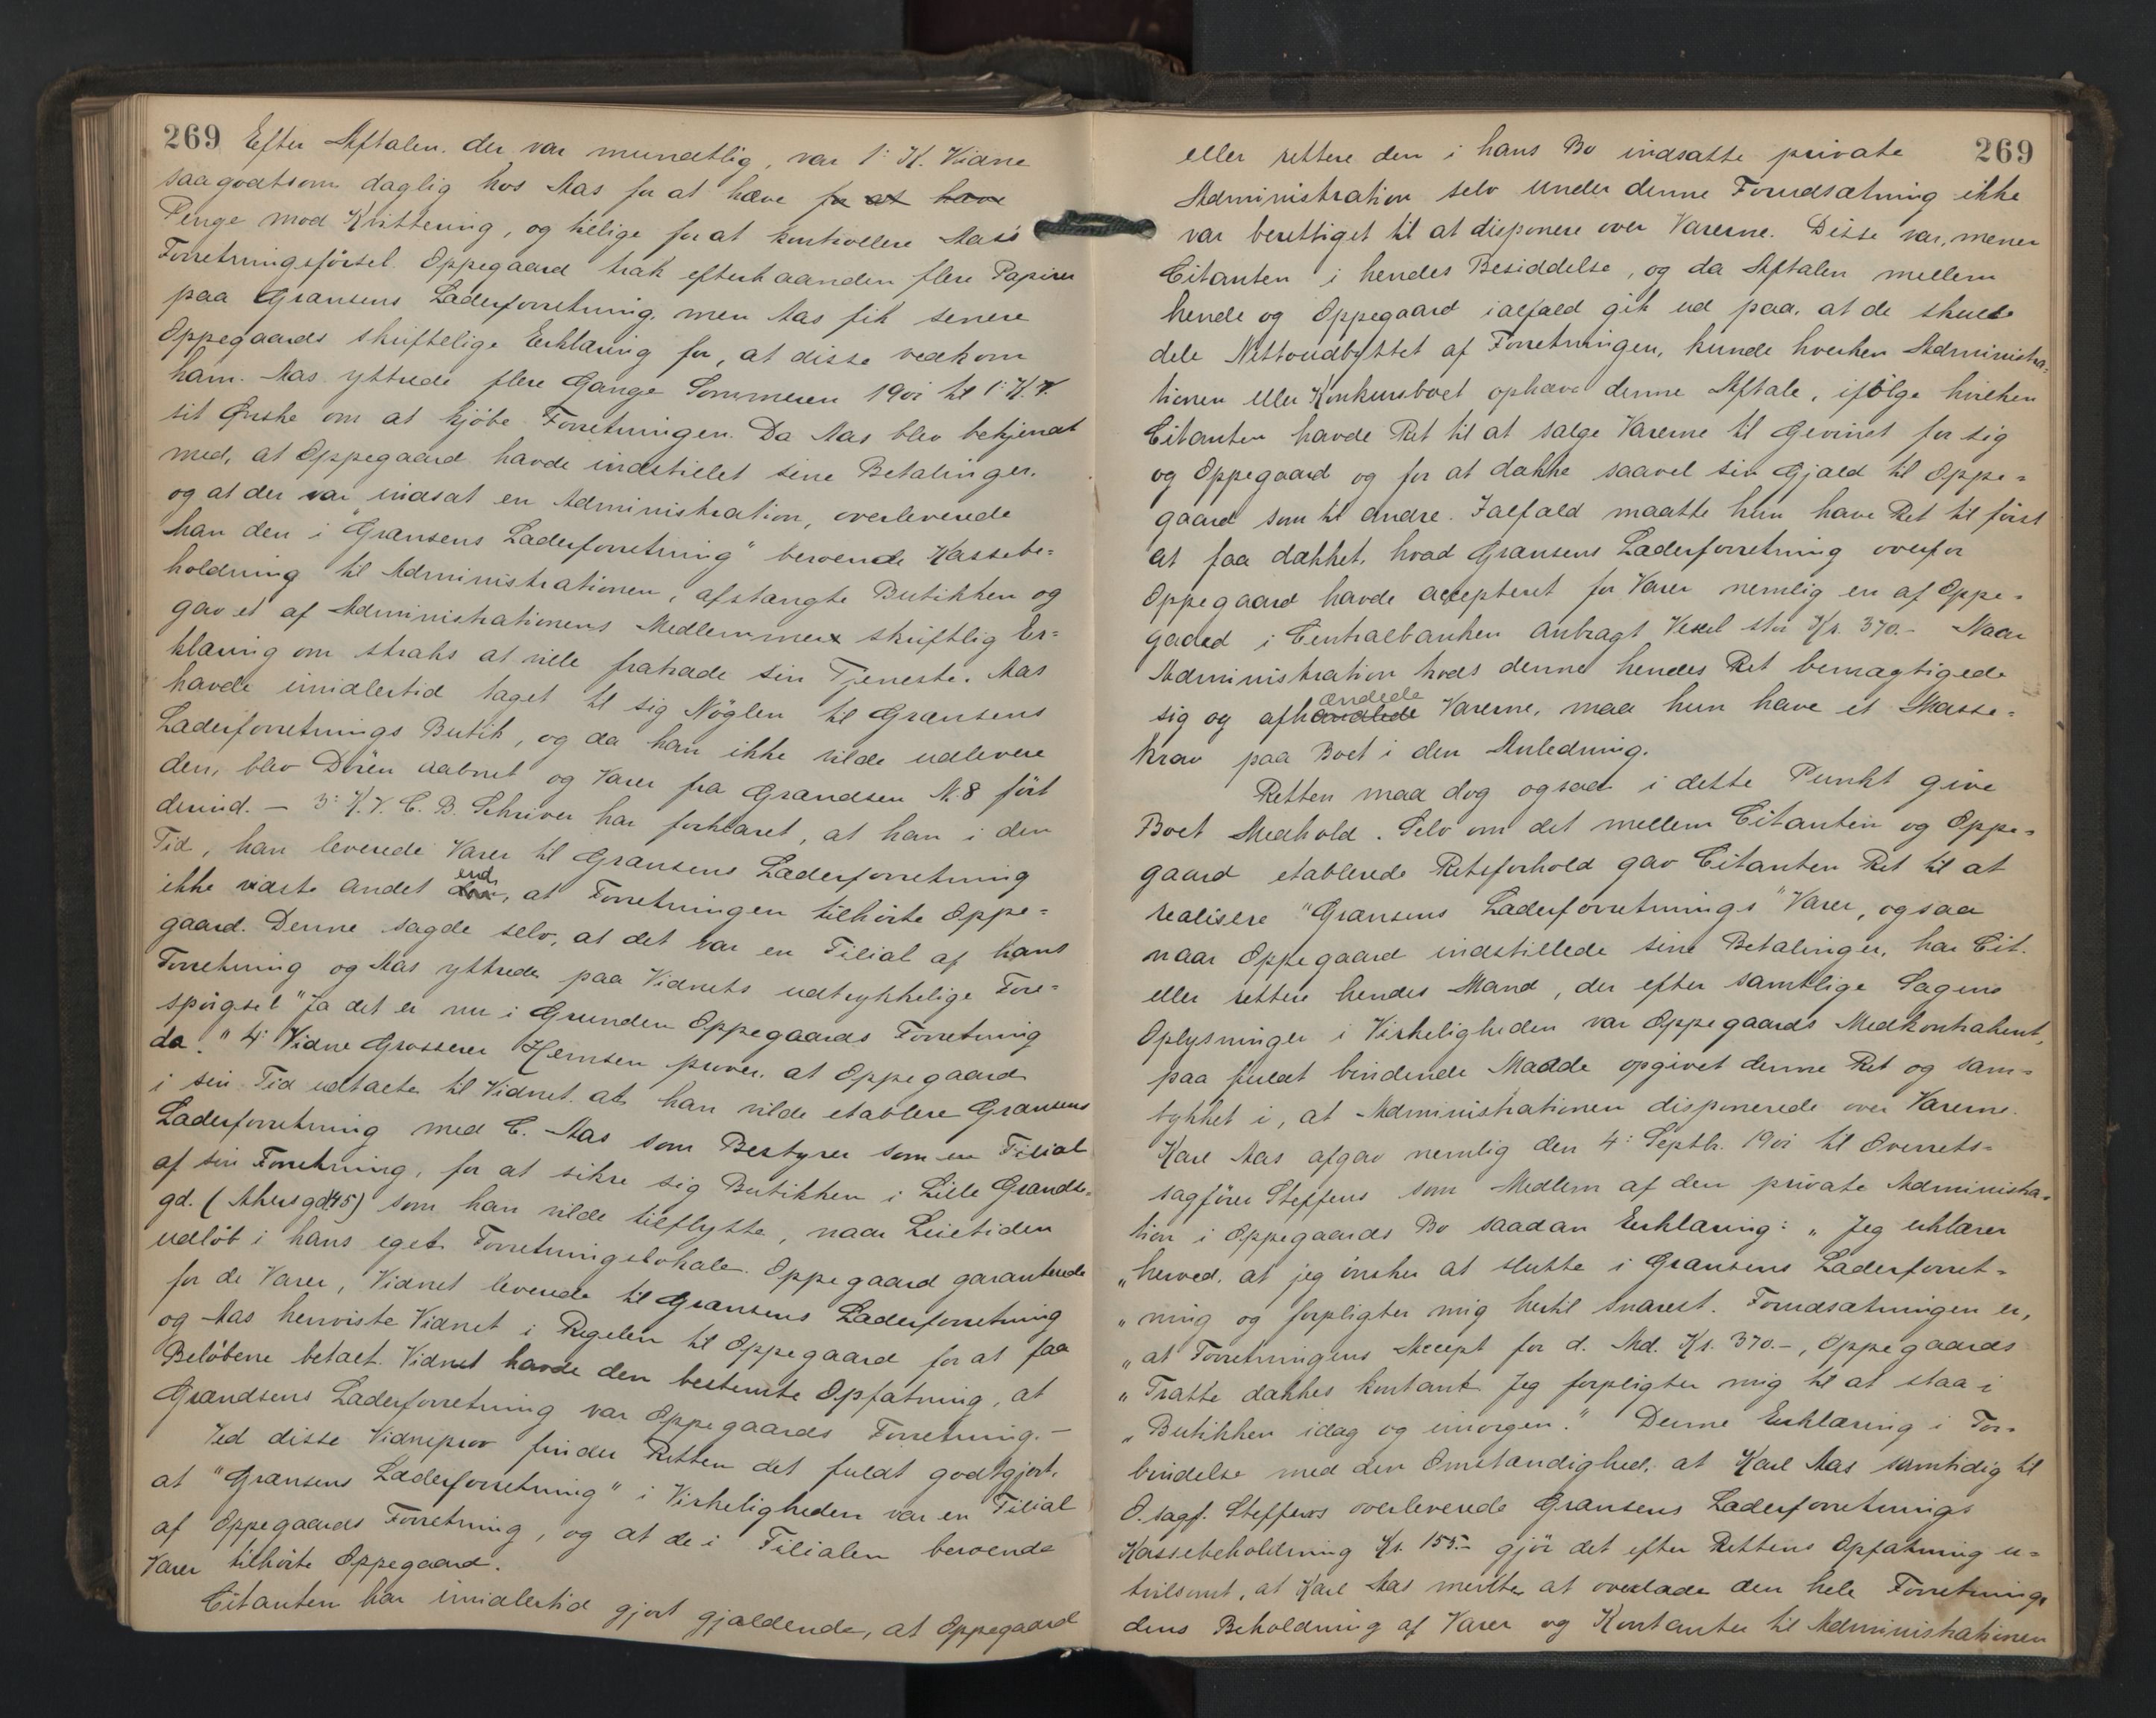 269 Efter Aftalen, der var mundtlig, var 1: K. Vidne
saagodtsom daglig hos Aas for at hæve for at hæve
Penge mod Kvittering, og tillige for at kontrollere Aas's
Forretningsførsel. Oppegaard trak efterhaanden flere Papirer
paa Grænsens Læderforretning, men Aas fik senere
Oppegaards skriftelige Erklæring for, at disse vedkom
ham. Aas yttrede flere Gange Sommeren 1901 til 1: K.V.
sit Ønske om at kjøbe Forretningen. Da Aas blev bekjendt
med, at Oppegaard havde indstillet sine Betalinger,
og at der var indsat en Administration, overleverede
han den i "Grænsens Læderforretning" beroende Kassebe-
holdning til Administrationen, afstængte Butikken og
gav et af Administrationens Medlemmer skriftlig Er-
klæring om straks at ville fratræde sin Tjeneste. Aas
havde imidlertid taget til sig Nøglen til Grænsens
Læderforretnings Butik, og da han ikke vilde udlevere
den, blev Døren aabnet og Varer fra Grændsen N. 8 ført
derind. — 3: K.V. C. B. Schriver har forklaret, at han i den
Tid, han leverede Varer til Grænsens Læderforretning
ikke vidste andet end, at Forretningen tilhørte Oppe-
gaard. Denne sagde selv, at det var en Filial af hans
Forretning og Aas yttrede paa Vidnets udtrykkelige Fore-
spørgsel "Ja det er nu i Grunden Oppegaards Forretning
da." 4: Vidne Grosserer Hernsen prover, at Oppegaard
i sin Tid udtalte til Vidnet, at han vilde etablere Grænsens
Læderforretning med C. Aas som Bestyrer som en Filial
af sin Forretning, for at sikre sig Butikken i Lille Grændse-
gd. (Akersgd 45) som han vilde tilflytte, naar Leietiden
udløb i hans eget Forretningslokale. Oppegaard garanterede
for de Varer, Vidnet leverede til Grænsens Læderforretning
og Aas henviste Vidnet i Regelen til Oppegaard for at faa
Beløbene betalt. Vidnet havde den bestemte Opfatning, at
Grændsens Læderforretning var Oppegaards Forretning. —
Ved disse Vidneprov finder Retten det fuldt godtgjort,
at "Grænsens Læderforretning" i Virkeligheden var en Filial
af Oppegaards Forretning, og at de i Filialen beroende
Varer tilhørte Oppegaard.
Citanten har imidlertid gjort gjældende, at Oppegaard
eller rettere den i hans Bo indsatte private 269
Administration selv under denne Forudsætning ikke
var berettiget til at disponere over Varerne. Disse var, mener
Citanten i hendes Besiddelse, og da Aftalen mellem
hende og Oppegaard ialfald gik ud paa, at de skulde
dele Nettoudbyttet af Forretningen, kunde hverken Administra-
tionen eller Konkursboet ophæve denne Aftale, ifølge hvilken
Citanten havde Ret til at sælge Varerne til Gevinst for sig
og Oppegaard og for at dække saavel sin Gjæld til Oppe-
gaard som til andre. Ialfald maatte hun have Ret til først
at faa dækket, hvad Grænsens Læderforretning overfor
Oppegaard havde accepteret for Varer nemlig en af Oppe-
gaard i Centralbanken anbragt Vexel stor Kr. 370.- Naar
Administration trods denne hendes Ret bemægtigede
sig og afhændede Varerne, maa hun have et Masse-
krav paa Boet i den Anledning.
Retten maa dog ogsaa i dette Punkt give
Boet Medhold. Selv om det mellem Citanten og Oppe-
gaard etablerede Retsforhold gav Citanten Ret til at
realisere "Grænsens Læderforretnings" Varer, ogsaa
naar Oppegaard indstillede sine Betalinger, har Cit.
eller rettere hendes Mand, der efter samtlige Sagens
Oplysninger i Virkeligheden var Oppegaards Medkontrahent,
paa fuldt bindende Maade opgivet denne Ret og sam-
tykket i, at Administrationen disponerede over Varerne.
Karl Aas afgav nemlig den 4: Septbr. 1901 til Overrets-
sagfører Steffens som Medlem af den private Administra-
tion i Oppegaards Bo saadan Erklæring: „Jeg erklærer
„herved, at jeg ønsker at slutte i Grænsens Læderforret-
„ning og forpligter mig hertil snarest. Forudsætningen er,
„at Forretningens Accept for d. Md. Kr. 370.-, Oppegaards
„Tratte dækkes kontant. Jeg forpligter mig til at staa i
„Butikken idag og imorgen." Denne Erklæring i For-
bindelse med den Omstændighed, at Karl Aas samtidig til
O.sagf. Steffens overleverede Grænsens Læderforretnings
Kassebeholdning Kr. 155.- gjør det efter Rettens Opfatning u-
tvilsomt, at Karl Aas mente at overlade den hele Forretning,
dens Beholdning af Varer og Kontanter til Administrationen